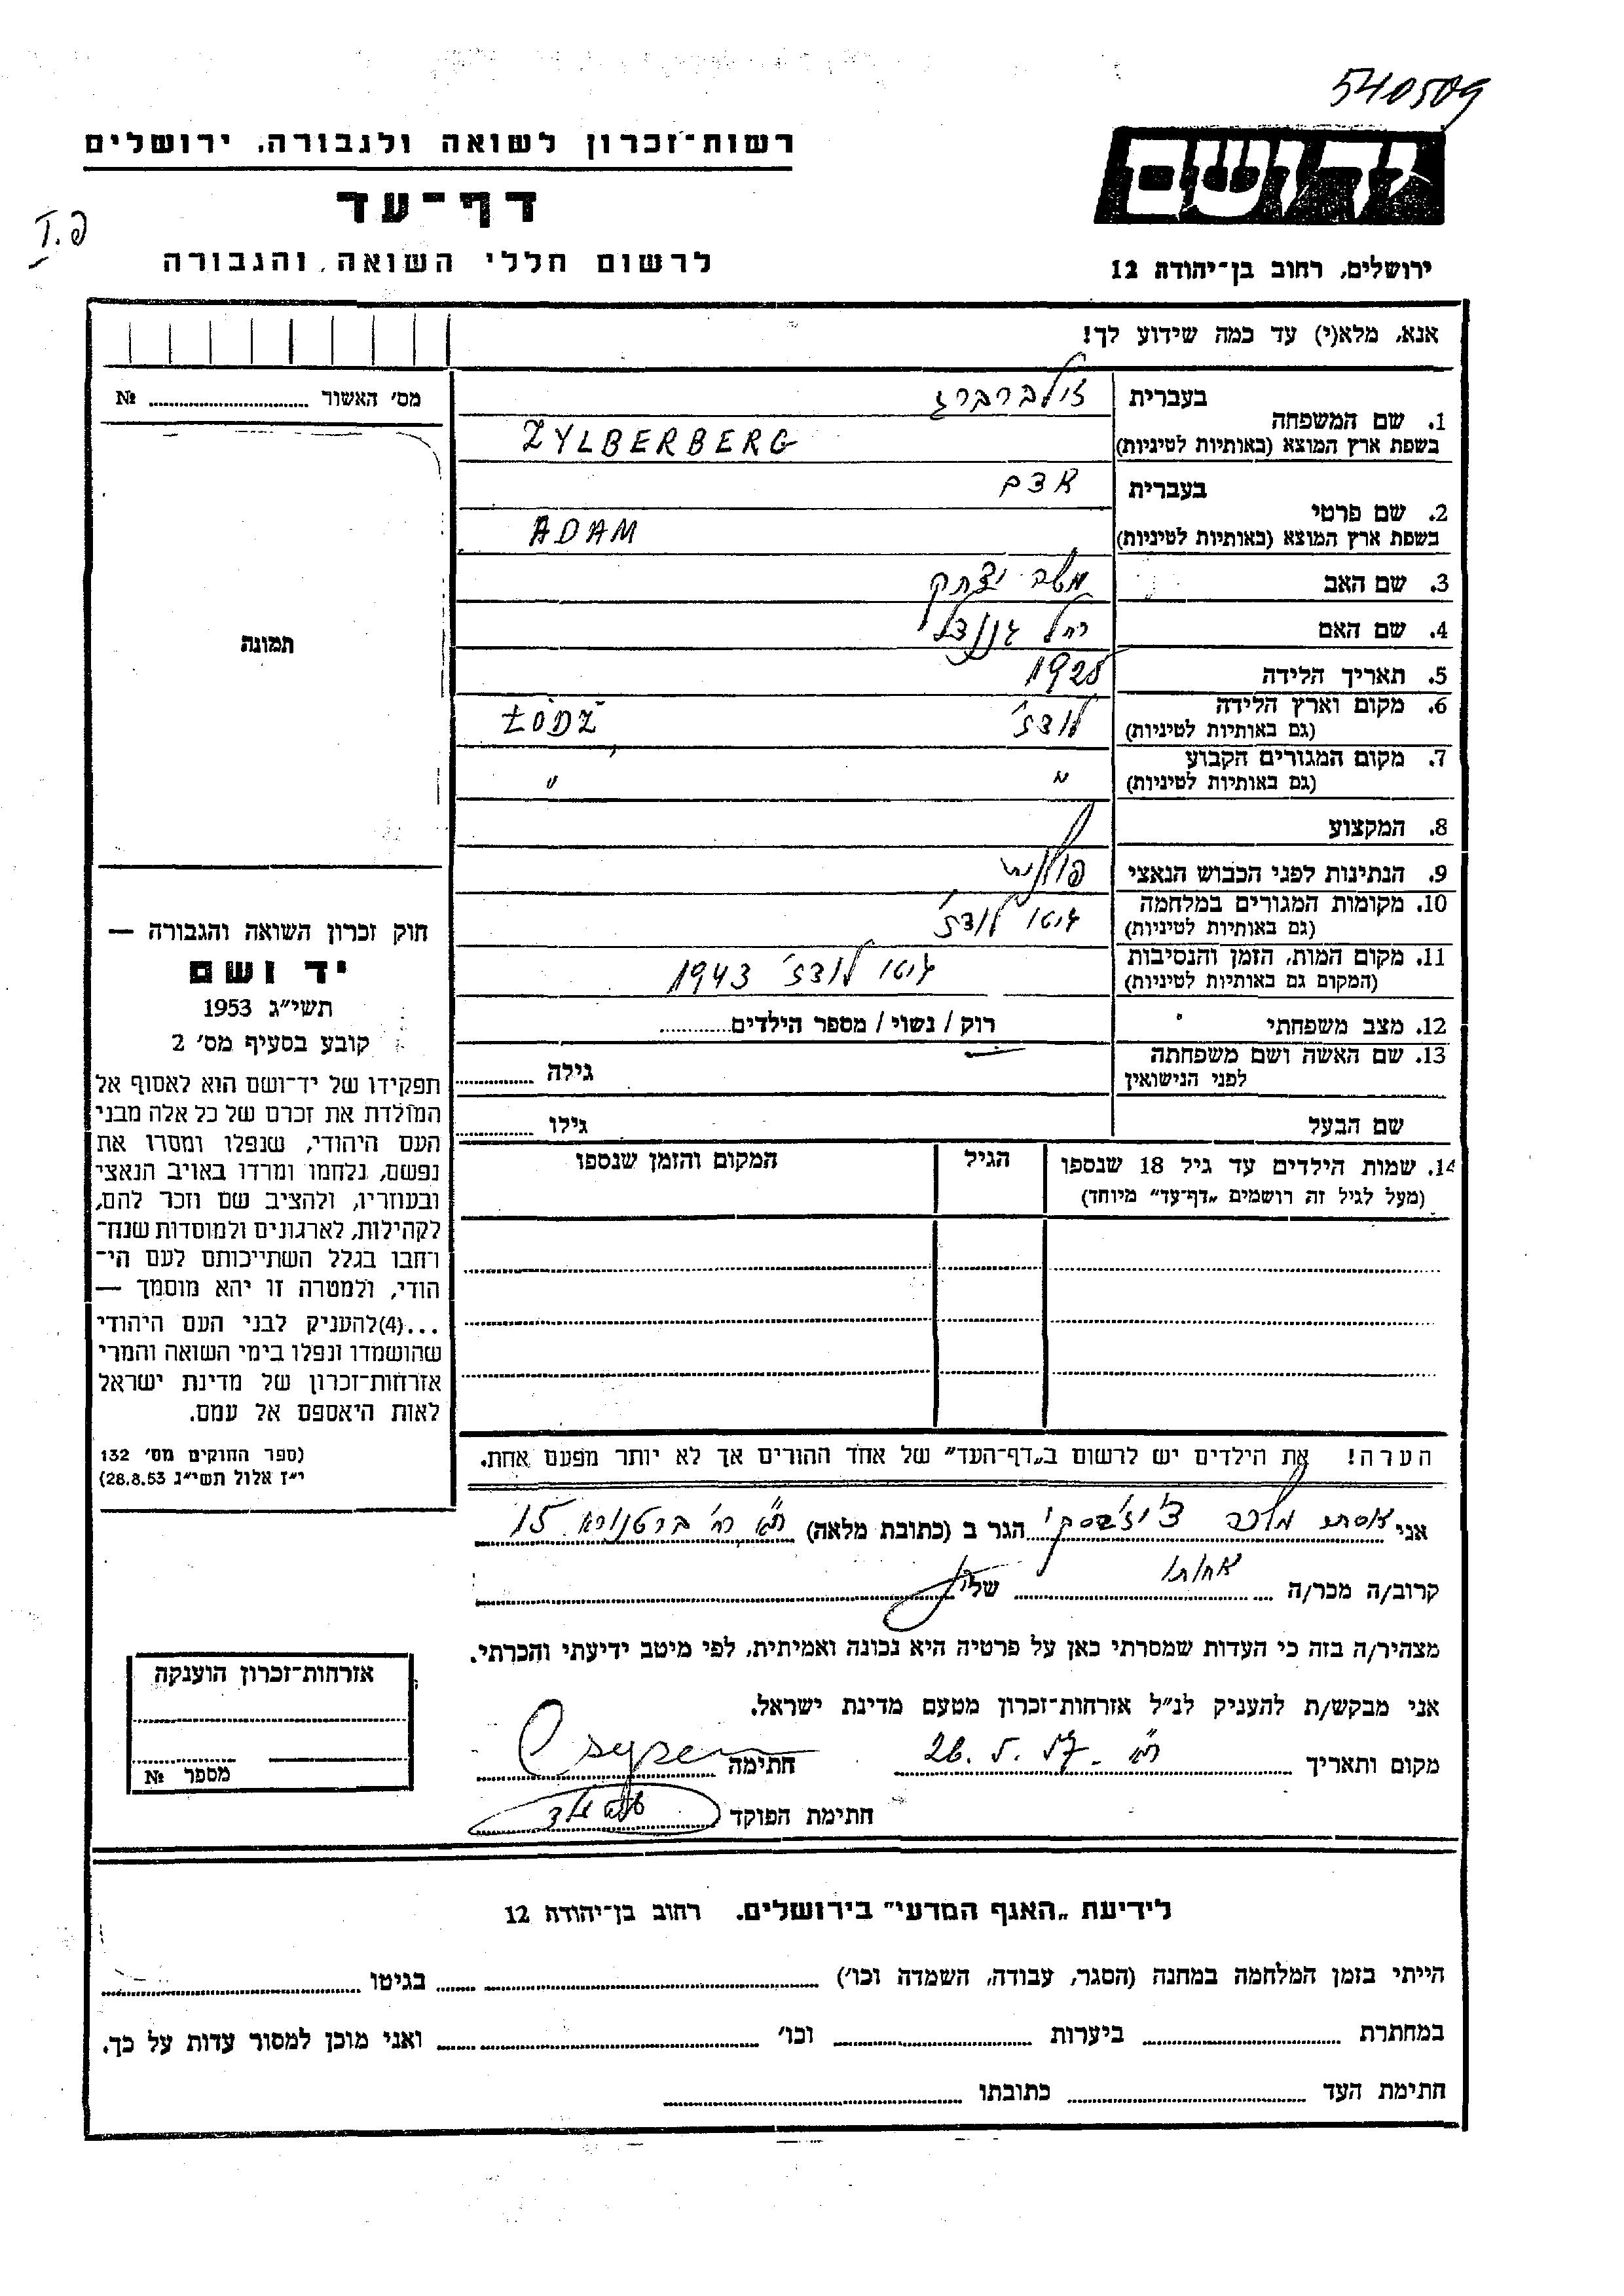 540509
רשות־זכרון לשואה ולגבורה, ירושלים
יד ושם
דף־עד
לרשום חללי השואה והגבורה
ירושלים, רחוב בן־יהודה 12
אנא, מלא(י) עד כמה שידוע לך!
בעברית זילברברג
1. שם המשפחה
בשפת ארץ המוצא (באותיות לטיניות) ZYLBERBERG
בעברית אדם
2. שם פרטי
בשפת ארץ המוצא (באותיות לטיניות) ADAM
3. שם האב משה יצחק
4. שם האם רחל
5. תאריך הלידה 1925
6. מקום וארץ הלידה לודז' ŁÓDŹ
(גם באותיות לטיניות)
7. מקום המגורים הקבוע " "
(גם באותיות לטיניות)
8. המקצוע
9. הנתינות לפני הכבוש הנאצי פולנית
10. מקומות המגורים במלחמה גיטו לודז'
(גם באותיות לטיניות)
11. מקום המות, הזמן והנסיבות גיטו לודז' 1943
(המקום גם באותיות לטיניות)
12. מצב משפחתי רוק / נשוי / מספר הילדים
13. שם האשה ושם משפחתה גילה
לפני הנישואין
שם הבעל גילו
14. שמות הילדים עד גיל 18 שנספו הגיל המקום והזמן שנספו
(מעל לגיל זה רושמים „דף־עד" מיוחד)
הערה! את הילדים יש לרשום ב„דף־העד" של אחד ההורים אך לא יותר מפעם אחת.
מס' האשור №
תמונה
חוק זכרון השואה והגבורה —
יד ושם
תשי"ג 1953
קובע בסעיף מס' 2
תפקידו של יד־ושם הוא לאסוף אל
המולדת את זכרם של כל אלה מבני
העם היהודי, שנפלו ומסרו את
נפשם, נלחמו ומרדו באויב הנאצי
ובעוזריו, ולהציב שם וזכר להם,
לקהילות, לארגונים ולמוסדות שנח־
רחבו בגלל השתייכותם לעם הי־
הודי, ולמטרה זו יהא מוסמך —
...(4)להעניק לבני העם היהודי
שהושמדו ונפלו בימי השואה והמרי
אזרחות־זכרון של מדינת ישראל
לאות היאספם אל עמם.
(ספר החוקים מס' 132
י"ז אלול תשי"ג 28.8.53)
אני הגר ב (כתובת מלאה) ת"א רח' ברטנורא 15
קרוב/ה מכר/ה אחותו של
מצהיר/ה בזה כי העדות שמסרתי כאן על פרטיה היא נכונה ואמיתית, לפי מיטב ידיעתי והכרתי.
אני מבקש/ת להעניק לנ"ל אזרחות־זכרון מטעם מדינת ישראל.
מקום ותאריך ת"א 26. 5. 57 חתימה
חתימת הפוקד
אזרחות־זכרון הוענקה
מספר №
לידיעת „האגף המדעי" בירושלים. רחוב בן־יהודה 12
הייתי בזמן המלחמה במחנה (הסגר, עבודה, השמדה וכו') בגיטו
במחתרת ביערות וכו' ואני מוכן למסור עדות על כך.
חתימת העד כתובתו